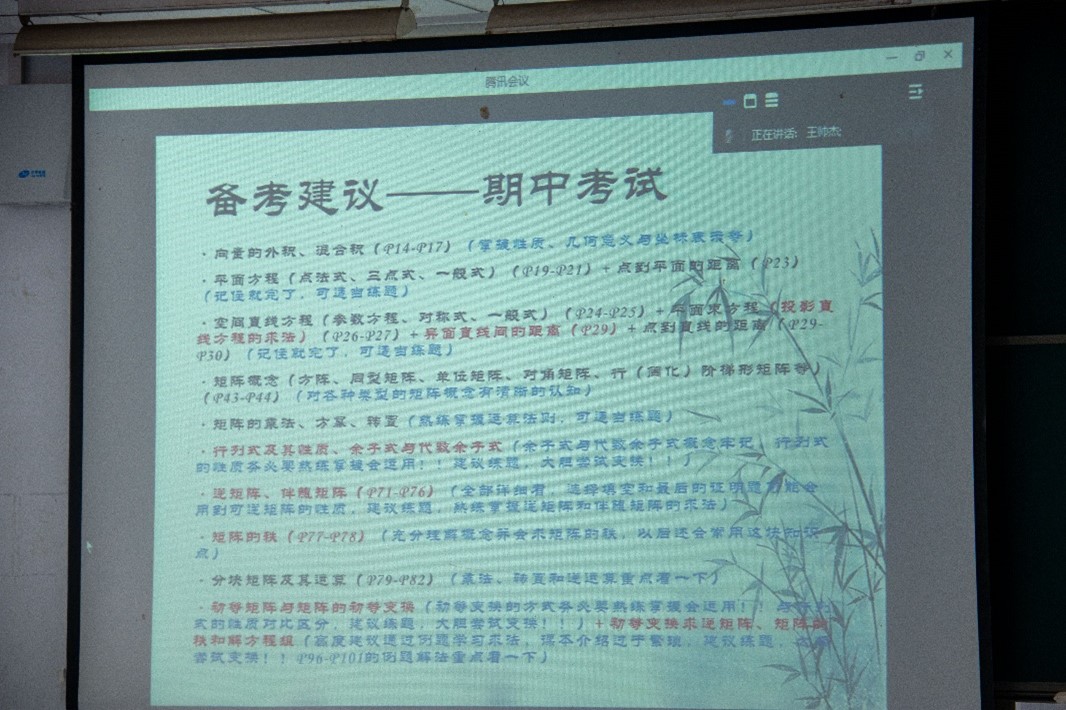 腾讯会议
正在讲话: 王帅杰
备考建议——期中考试
·向量的外积、混合积（P14-P17）（掌握性质、几何意义与坐标表演等）
·平面方程（点法式、三点式、一般式）（P19-P21）+点到平面的距离（P23）
（记住就完了，可适当练题）
·空间直线方程（参数方程、对称式、一般式）（P24-P25）+平面束方程（投影直
线方程的求法）（P26-P27）+异面直线间的距离（P29）+点到直线的距离（P29-
P30）（记住就完了，可适当练题）
·矩阵概念（方阵、同型矩阵、单位矩阵、对角矩阵、行（简化）阶梯形矩阵等）
（P43-P44）（对各种类型的矩阵概念有清晰的认知）
·矩阵的乘法、方幂、转置（熟练掌握运算法则，可适当练题）
·行列式及其性质、余子式与代数余子式（余子式与代数余子式概念牢记，行列式
的性质务必要熟练掌握会运用！！建议练题，大胆尝试变换！！）
·逆矩阵、伴随矩阵（P71-P76）（全部详细看，选择填空和最后的证明题可能会
用到可逆矩阵的性质，建议练题，熟练掌握逆矩阵和伴随矩阵的求法）
·矩阵的秩（P77-P78）（充分理解概念并会求矩阵的秩，以后还会常用这块知识
点）
·分块矩阵及其运算（P79-P82）（乘法、转置和逆运算重点看一下）
·初等矩阵与矩阵的初等变换（初等变换的方式务必要熟练掌握会运用！！与行列
式的性质对比区分，建议练题，大胆尝试变换！！）+初等变换求逆矩阵、矩阵的
秩和解方程组（高度建议通过例题学习求法，课本介绍过于繁琐，建议练题，大胆
尝试变换！！P96-P101的例题解法重点看一下）